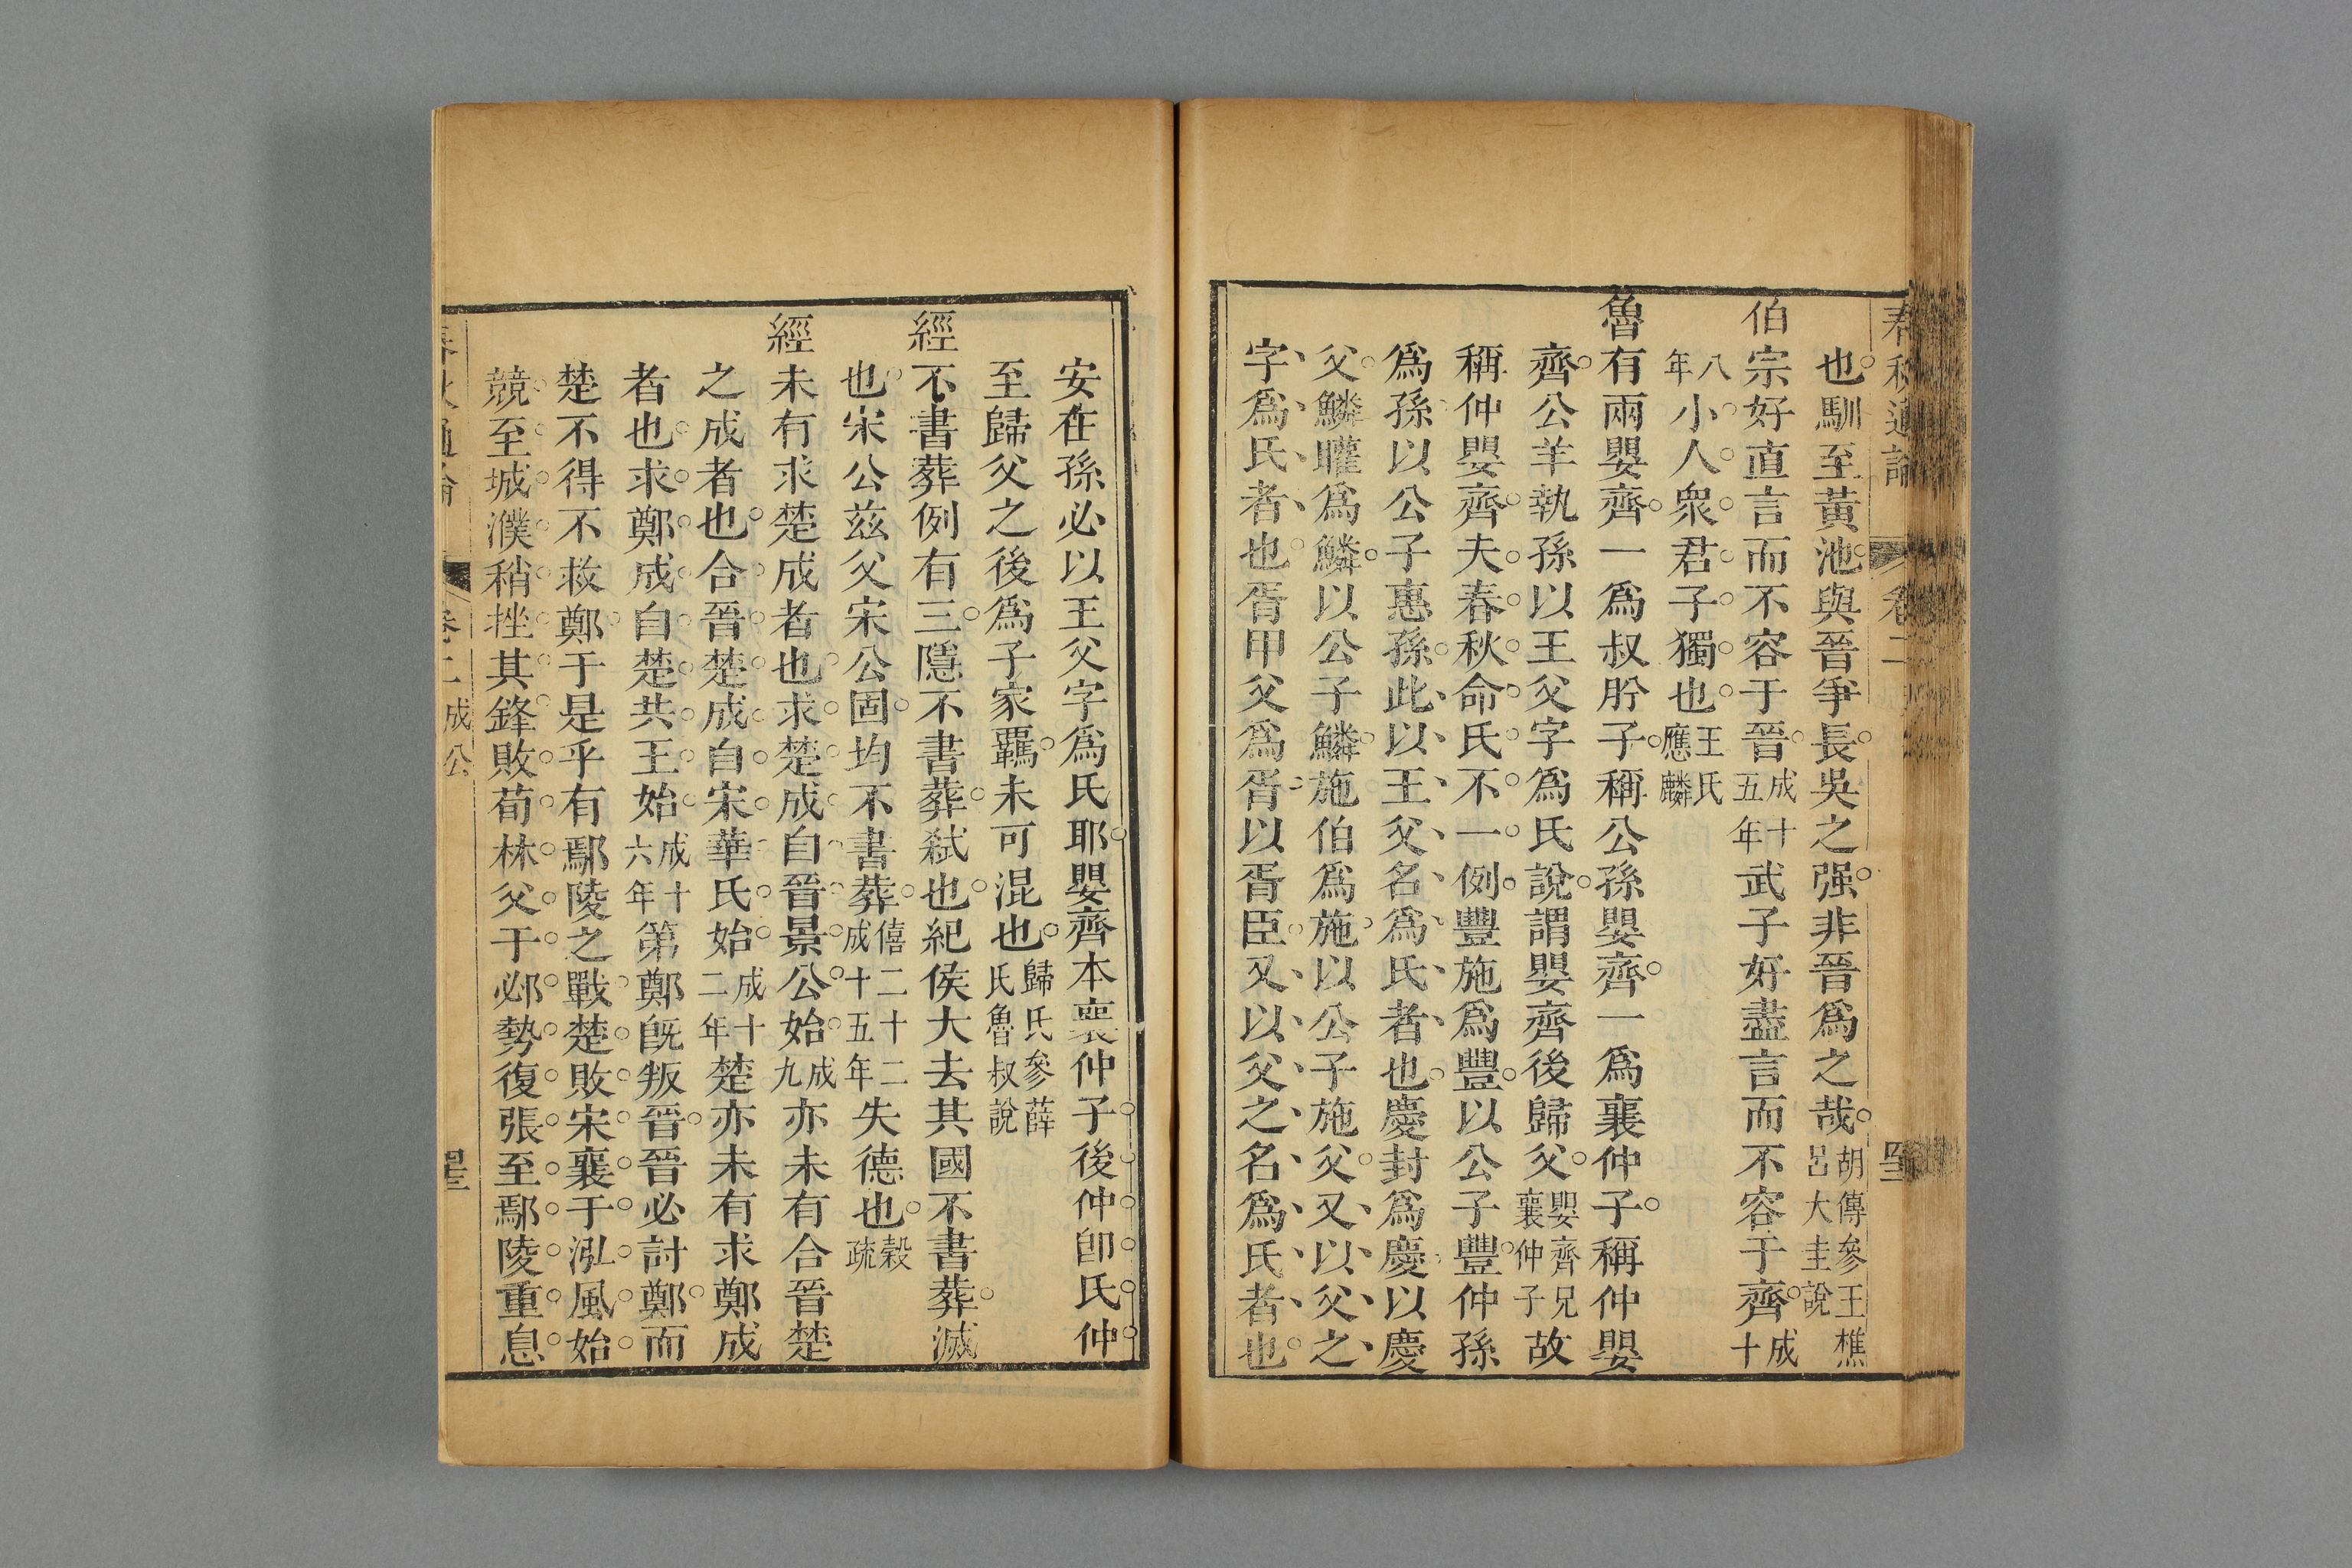 也馴至黃池與晉爭長吳之强非晉爲之哉胡傳參王樵呂大圭說
伯宗好直言而不容于晉成十五年武子好盡言而不容于齊成十
八年小人衆君子獨也王氏應麟
魯有兩嬰齊一爲叔肸子稱公孫嬰齊一爲襄仲子稱仲嬰
齊公羊執孫以王父字爲氏說謂嬰齊後歸父嬰齊兄襄仲子故
稱仲嬰齊夫春秋命氏不一例豐施爲豐以公子豐仲孫
爲孫以公子惠孫此以王父名爲氏者也慶封爲慶以慶
父鱗矔爲鱗以公子鱗施伯爲施以公子施父又以父之
字爲氏者也胥甲父爲胥以胥臣又以父之名爲氏者也
安在孫必以王父字爲氏耶嬰齊本襄仲子後仲卽氏仲
至歸父之後爲子家羈未可混也歸氏參薛氏魯叔說
經不書葬例有三隱不書葬弑也紀侯大去其國不書葬滅
也宋公茲父宋公固均不書葬僖二十二成十五年失德也穀疏
經未有求楚成者也求楚成自晉景公始成九亦未有合晉楚
之成者也合晉楚成自宋華氏始成十二年楚亦未有求鄭成
者也求鄭成自楚共王始成十六年第鄭旣叛晉晉必討鄭而
楚不得不救鄭于是乎有鄢陵之戰楚敗宋襄于泓風始
競至城濮稍挫其鋒敗荀林父于邲勢復張至鄢陵重息